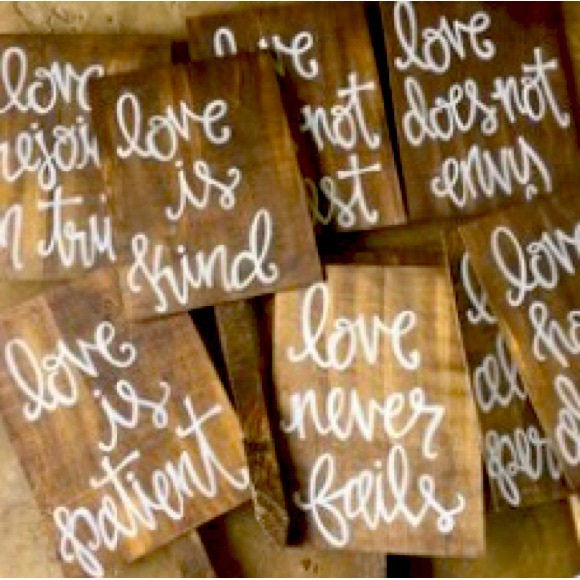 love
rejoi
n tru
love
is
kind
love
not
st
love
does not
envy
love
is
patient
love
never
fails
l
al
per
love
ho